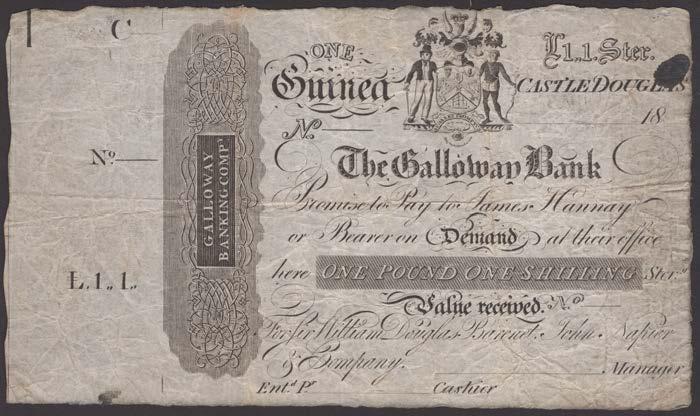 C
ONE
Guinea
£1.,1. Ster.
CASTLE DOUGLAS
No. 18
No.
The Galloway Bank
GALLOWAY
BANKING COMPY
Promise to Pay to James Hannay
or Bearer on Demand at their office
£.1.,1.,
here ONE POUND ONE SHILLING Ster.g
Value received. No.
For Sir William Douglas Baronet. John Napier
& Company. Manager
Ent.d P.r Cashier